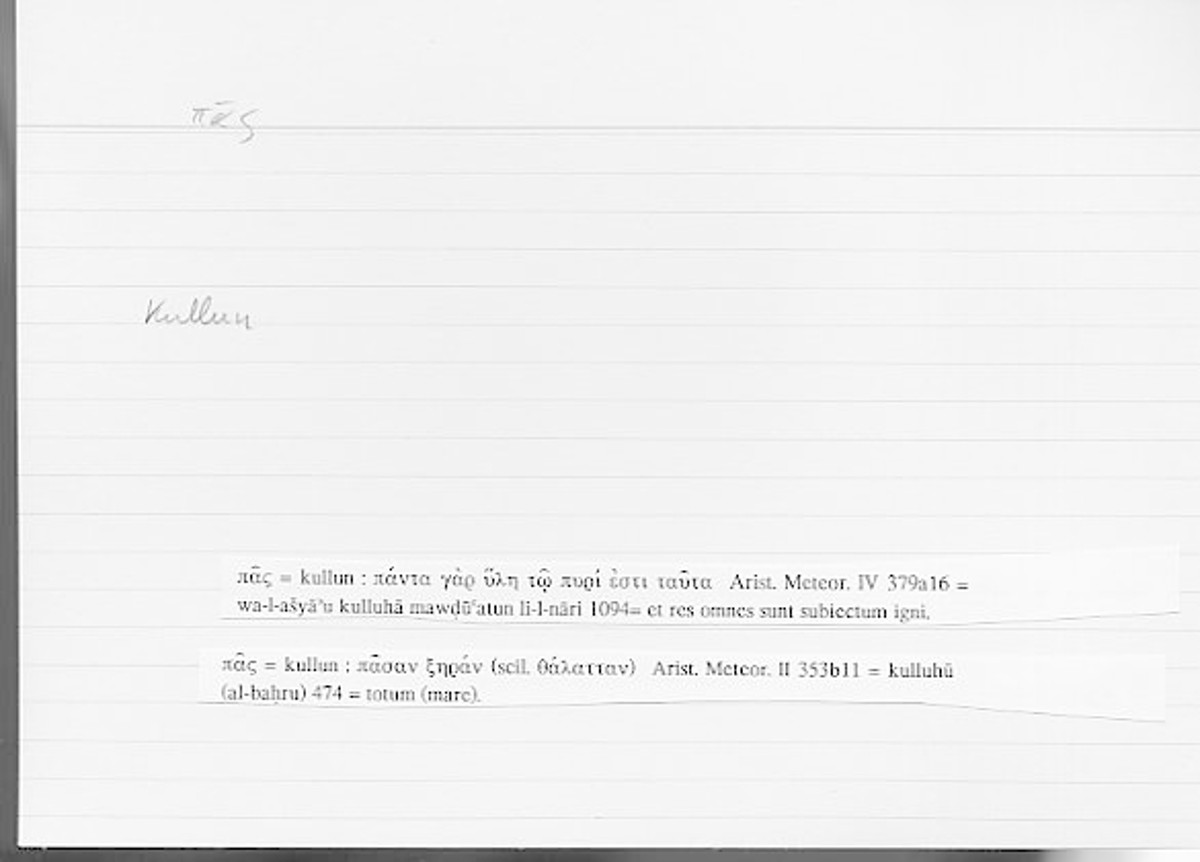 πᾶς
Kullun
πᾶς = kullun : πάντα γὰρ ὕλη τῷ πυρί ἐστι ταῦτα Arist. Meteor. IV 379a16 =
wa-l-ašyāʾu kulluhā mawḍūʿatun li-l-nāri 1094= et res omnes sunt subiectum igni.
πᾶς = kullun : πᾶσαν ξηράν (scil. θάλατταν) Arist. Meteor. II 353b11 = kulluhū
(al-baḥru) 474 = totum (mare).